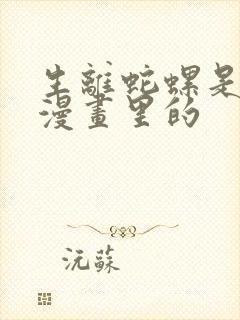 生離蛇螺是
漫畫里的
沅蘇